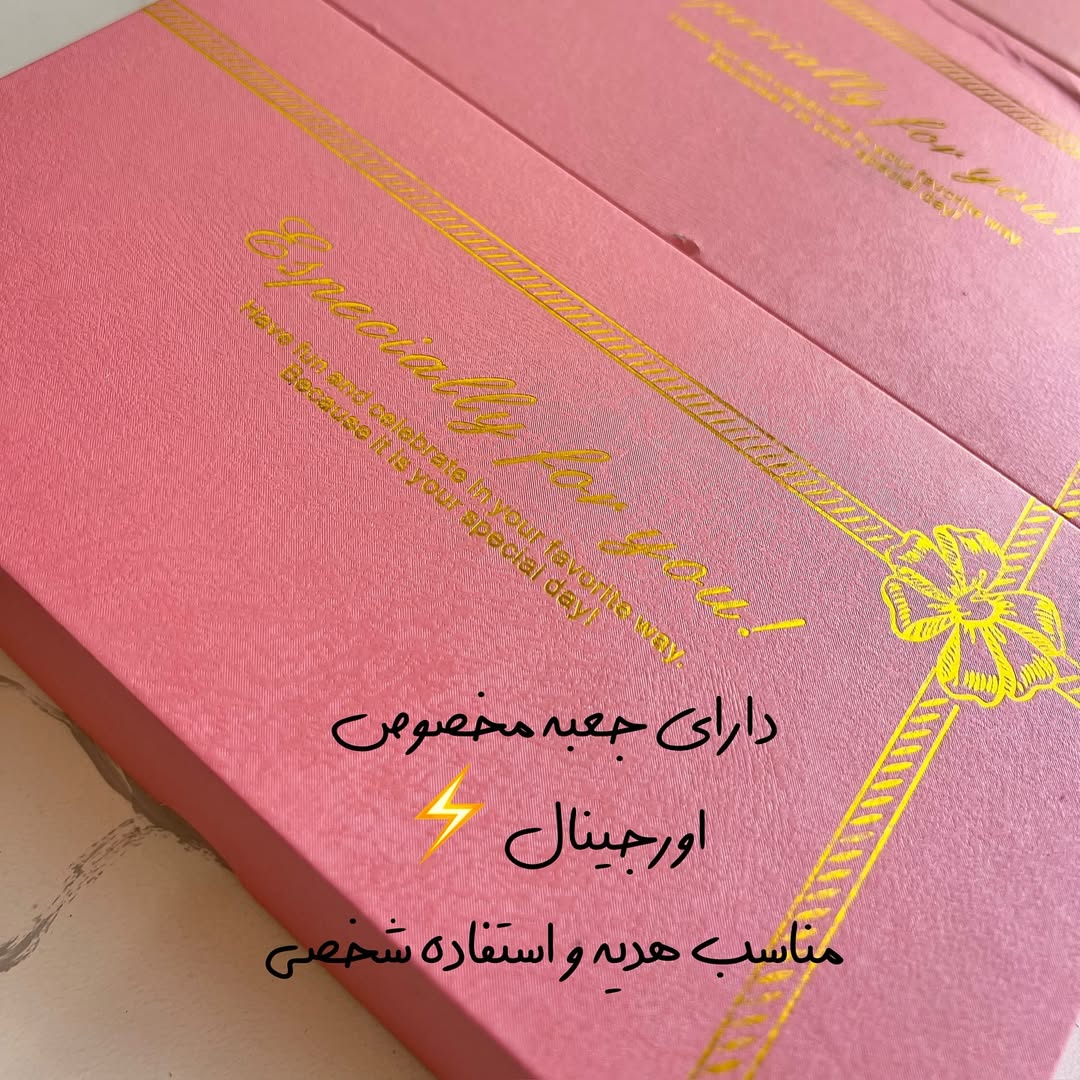 Especially for you!
Have fun and celebrate in your favorite way.
Because it is your special day!
pecially for you!
Have fun and celebrate in your favorite way.
Because it is your special day!
دارای جعبه مخصوص
اورجینال ⚡
مناسب هدیه و استفاده شخصی